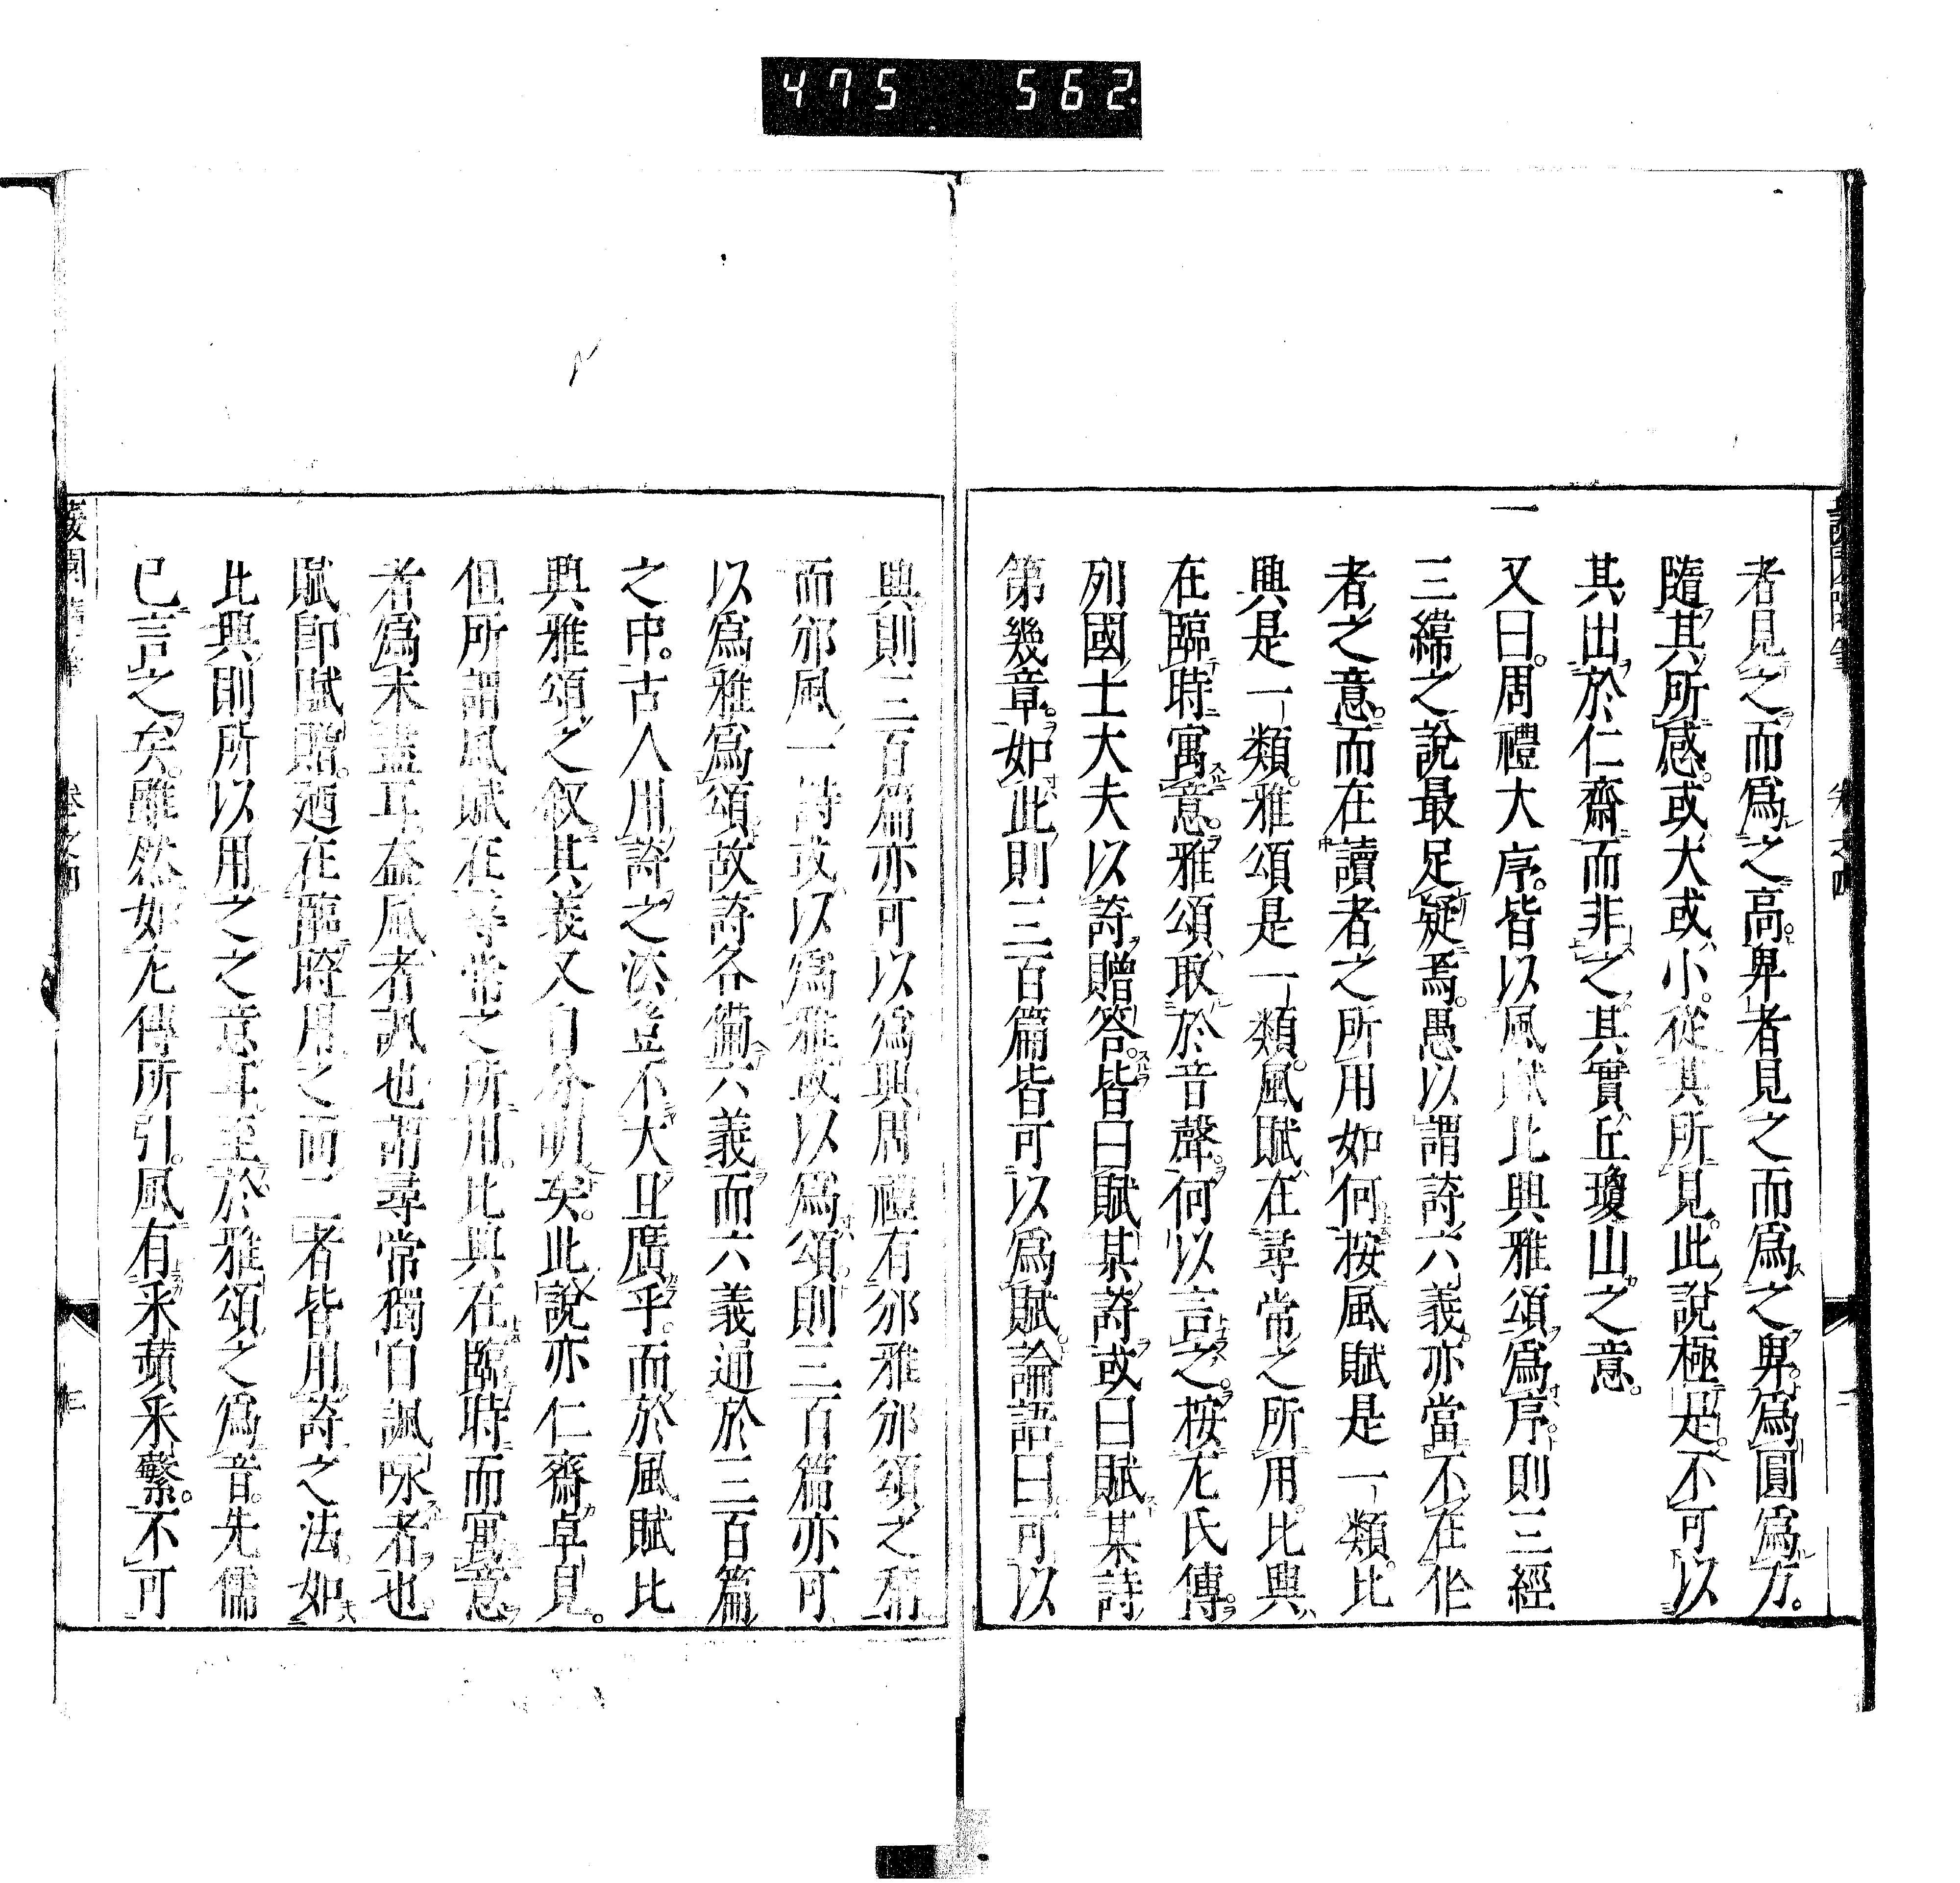 475 562
者見之而爲之高。卑者見之而爲之卑。爲圓爲方。
隨其所感。或大或小。從其所見。此說極是。不可以
其出於仁齋而非之。其實丘瓊山之意。
一
又曰。周禮大序。皆以風賦比興雅頌爲序。則三經
三緯之說最足疑焉。愚以謂詩六義。亦當不在作
者之意。而在讀者之所用如何。按風賦是一類。比
興是一類。雅頌是一類。風賦在尋常之所用。比興
在臨時寓意。雅頌取於音聲。何以言之。按左氏傳。
列國士大夫以詩贈答。皆曰賦某詩或曰賦某詩
第幾章。如此則三百篇皆可以爲賦。論語曰。可以
興則三百篇亦可以爲興周禮有邠雅邠頌之稱
而邠風一詩或以爲雅或以爲頌。則三百篇亦可
以爲雅爲頌。故詩各備六義而六義通於三百篇
之中。古人用詩之法豈不大且廣乎。而於風賦比
興雅頌之叙其義又自分明矣。此說亦仁齋卓見。
但所謂風賦在尋常之所用。比興在臨時而寓意
者爲未盡耳。蓋風者諷也謂尋常獨自諷咏者也。
賦卽賦贈。廼在臨時用之而二者皆用詩之法。如
比興則所以用之之意耳至於雅頌之爲音。先儒
已言之矣。雖然如左傳所引。風有采蘋采蘩。不可